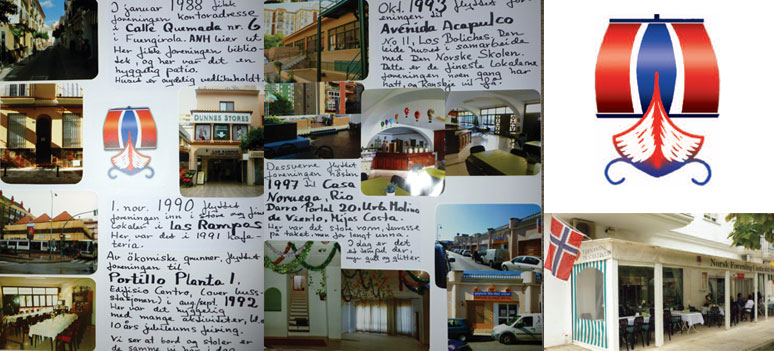 I januar 1988 fikk
foreningen kontoradresse
i Calle Quemada nr. 6
i Fuengirola. ANH eier ut
Her fikk foreningen biblio-
tek, og her var det en
hyggelig patio.
Huset er nydelig vedlikeholdt.
DUNNES STORES
1. nov. 1990 flyttet
foreningen inn i store og fine
lokaler i Las Rampas
Her var det i 1991 kafe-
teria.
Av økomiske grunner, flyttet
foreningen til
Portillo Planta 1
Edificio Centro, (over buss-
stasjonen) i aug/sept. 1992
Her var det hyggelig
med mange aktiviteter, bl.a
10 års jubileums feiring.
Vi ser at bord og stoler er
de samme vi har i dag
Okt. 1993 flyttet for-
eningen til
Avenida Acapulco
No 11, Los Boliches. Den
leide huset i samarbeide
med Den Norske Skolen.
Dette er de fineste lokalene
foreningen noen gang har
hatt, og kanskje vil få.
Dessverre flyttet
foreningen høsten
1997 til Casa
Noruega, Rio
Darro Portal 20. Urb. Molino
de Viento, Mijas Costa.
Her var det store rom, terrasse
på taket, men for langt unna.
I dag er det
et lager der
mye gull og glitter.
Norsk Forening